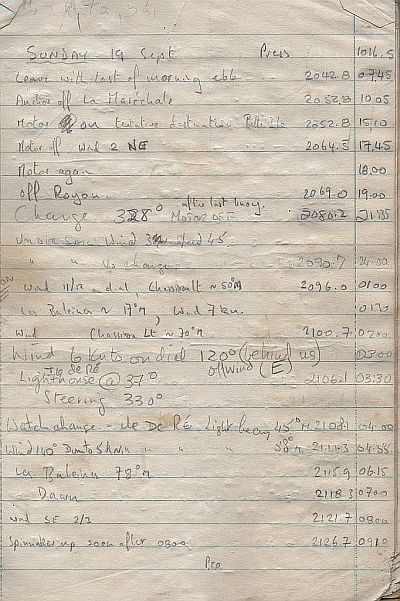 SUNDAY 19 Sept Press 1016.5
Leave with last of morning ebb 2042.8 07.45
Anchor off La Maréchale 2052.8 10.05
Motor on tentative destination, Belle Ile 2052.8 15.10
Motor off wind 2 NE 2064.5 17.45
Motor again 18.00
off Royan 2069.0 19.00
Change 328° after last buoy. MOTOR OFF 2080.2 2135
Wind 45
" " No change 2090.7 24.00
Wind 11/12 on dial, Chassiron lt ~ 50°M 2096.0 0100
Les Baleines ~ 17°M, Wind 7 kn. 0130
Wind Chassiron Lt ~ 70°M 2100.7 0200
Wind 6 knts on dial 120° (behind us) 0300
offwind (E)
Ile de Ré
Lighthouse @ 37° 2106.1 03:30
Steering 330°
Watch change - Ile De Ré Light bearing 45°M 2108.1 04.00
Wind 140° Down to 5 knts " " " 58°M 2111.3 04.55
Les Baleines 78°M 2115.9 06.15
Dawn 2118.3 0700
wind SE 2/3 2121.7 0800
Spinnaker up soon after 0800 2126.7 0910
PTO